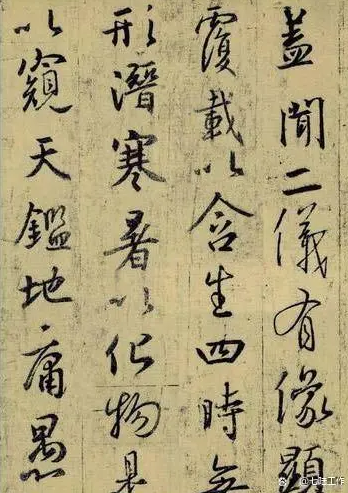 盖聞二儀有像顯
覆載以含生四時無
形潛寒暑以化物是
以窺天鑑地庸愚
七陆工作